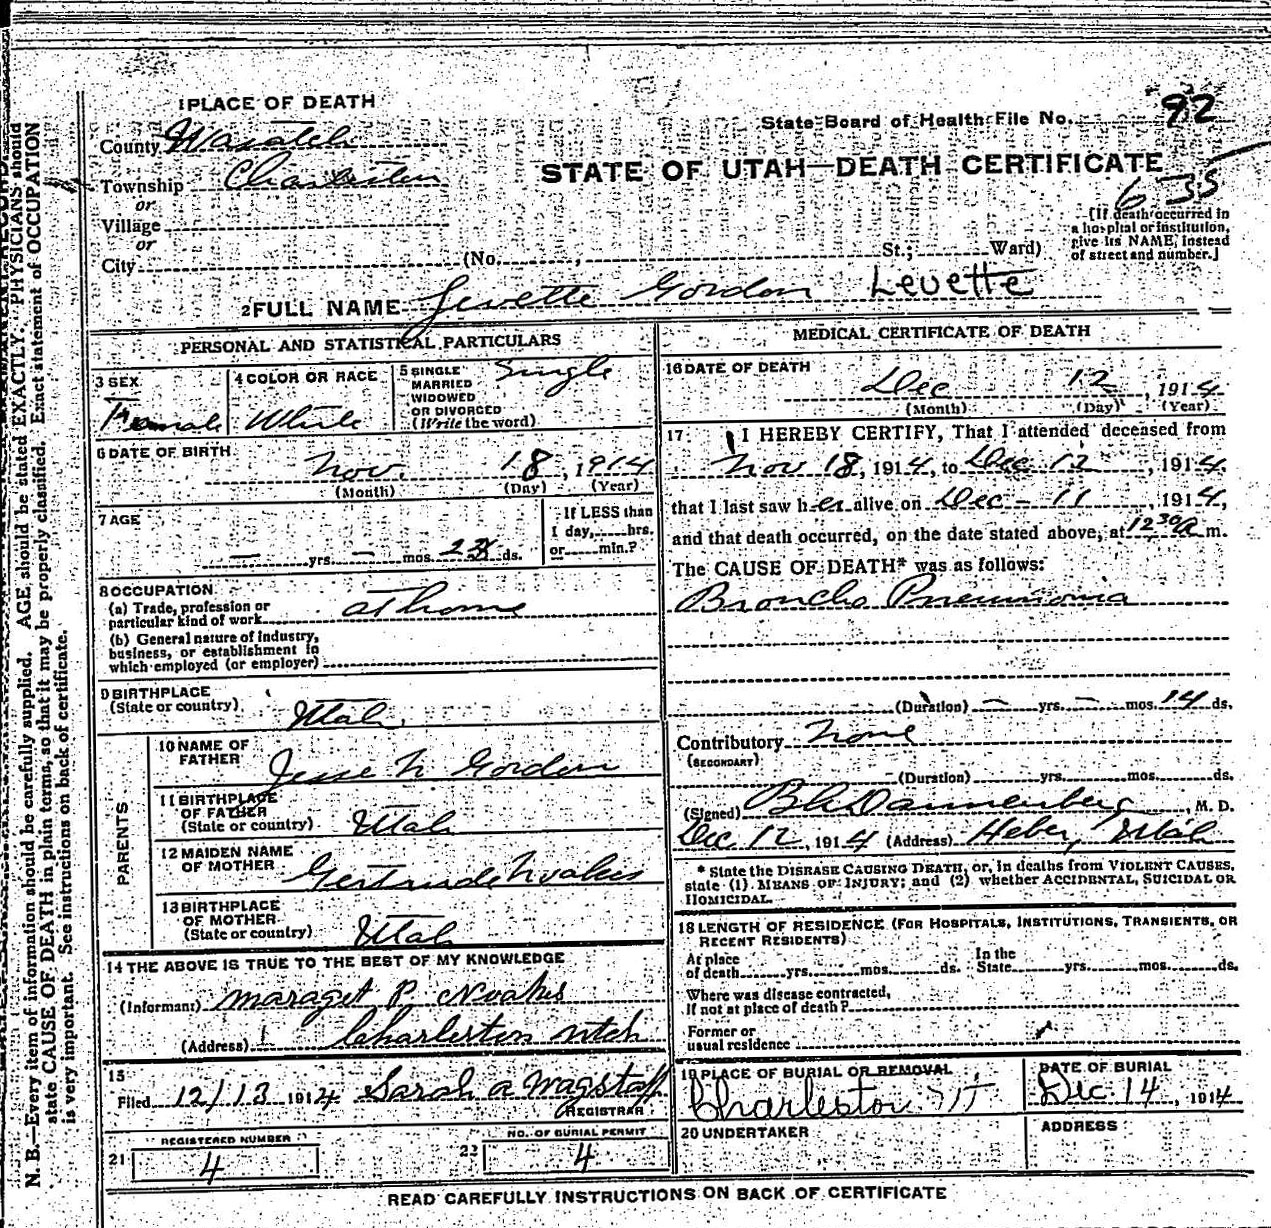 1 PLACE OF DEATH
County Wasatch
State Board of Health File No. 92
STATE OF UTAH—DEATH CERTIFICATE
Township Charleston
635
or
Village
or
City (No. , St.; Ward)
(If death occurred in
a hospital or institution,
give its NAME, instead
of street and number.)
2 FULL NAME Jevette Gordon Levette
PERSONAL AND STATISTICAL PARTICULARS
3 SEX
Female
4 COLOR OR RACE
White
5 SINGLE
MARRIED
WIDOWED
OR DIVORCED
(Write the word)
Single
6 DATE OF BIRTH
Nov. 18, 1914
(Month) (Day) (Year)
7 AGE
— yrs. — mos. ds.
If LESS than
1 day, hrs.
or min.?
8 OCCUPATION
(a) Trade, profession or
particular kind of work at home
(b) General nature of industry,
business, or establishment in
which employed (or employer)
9 BIRTHPLACE
(State or country) Utah.
PARENTS
10 NAME OF
FATHER Jesse N Gordon
11 BIRTHPLACE
OF FATHER
(State or country) Utah
12 MAIDEN NAME
OF MOTHER Gertrude Noakes
13 BIRTHPLACE
OF MOTHER
(State or country) Utah
14 THE ABOVE IS TRUE TO THE BEST OF MY KNOWLEDGE
(Informant) Maraget P. Noakes
(Address) Charleston Utah
15
Filed 12/13 1914 Sarah A Wagstaff
REGISTRAR
REGISTERED NUMBER
21 4
NO. OF BURIAL PERMIT
22 4
MEDICAL CERTIFICATE OF DEATH
16 DATE OF DEATH
Dec 12, 1914
(Month) (Day) (Year)
17 I HEREBY CERTIFY, That I attended deceased from
Nov 18, 1914, to Dec 12, 1914,
that I last saw her alive on Dec - 11, 1914,
and that death occurred, on the date stated above, at 12 30 a m.
The CAUSE OF DEATH* was as follows:
Broncho Pneumonia
(Duration) — yrs. — mos. 14 ds.
Contributory None
(SECONDARY)
(Duration) yrs. mos. ds.
(Signed) Dannenberg, M. D.
Dec. 12, 1914 (Address) Heber, Utah
* State the DISEASE CAUSING DEATH, or, in deaths from VIOLENT CAUSES,
state (1) MEANS OF INJURY; and (2) whether ACCIDENTAL, SUICIDAL OR
HOMICIDAL.
18 LENGTH OF RESIDENCE (FOR HOSPITALS, INSTITUTIONS, TRANSIENTS, OR
RECENT RESIDENTS)
At place
of death yrs. mos. ds.
In the
State yrs. mos. ds.
Where was disease contracted,
if not at place of death?
Former or
usual residence
19 PLACE OF BURIAL OR REMOVAL
Charleston UT
DATE OF BURIAL
Dec. 14, 1914
20 UNDERTAKER
ADDRESS
READ CAREFULLY INSTRUCTIONS ON BACK OF CERTIFICATE
N. B.—Every item of information should be carefully supplied. AGE should be stated EXACTLY. PHYSICIANS should
state CAUSE OF DEATH in plain terms, so that it may be properly classified. Exact statement of OCCUPATION
is very important. See instructions on back of certificate.